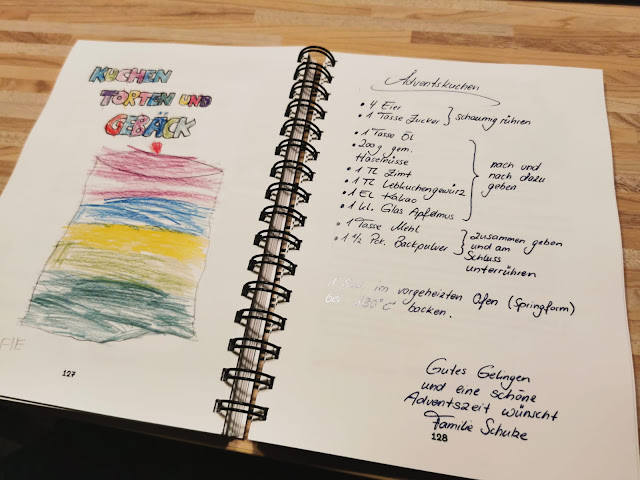 KUCHEN
TORTEN UND
GEBÄCK
FIE
127
Adventskuchen
• 4 Eier
• 1 Tasse Zucker } schaumig rühren
• 1 Tasse Öl
• 200g gem.
Haselnüsse
• 1 TL Zimt
• 1 TL Lebkuchengewürz
• 1 EL Kakao
• 1 kl. Glas Apfelmus
nach und
nach dazu
geben
• 1 Tasse Mehl
• 1 1/2 Pck. Backpulver
Zusammen geben
und am
Schluss
unterrühren
1 im vorgeheizten Ofen (Springform)
bei °C backen.
Gutes Gelingen
und eine schöne
Adventszeit wünscht
Familie Schulze
128